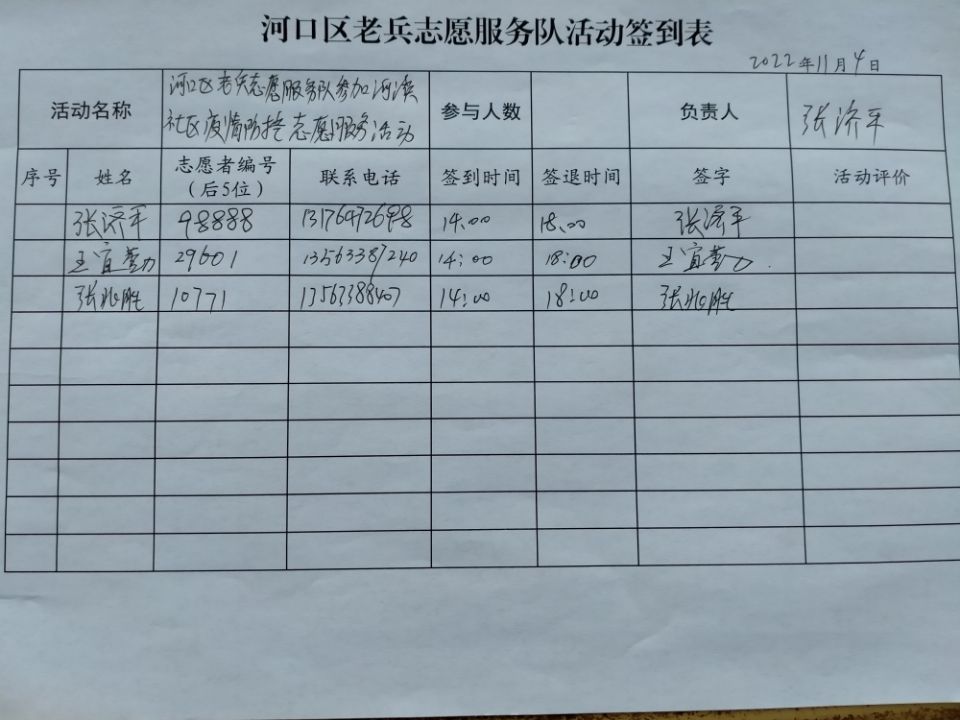 河口区老兵志愿服务队活动签到表
2022年11月4日
活动名称 河口区老兵志愿服务队参加河滨社区疫情防控志愿服务活动 参与人数 负责人 张济平
序号 姓名 志愿者编号（后5位） 联系电话 签到时间 签退时间 签字 活动评价
张济平 98888 14.00 18.00 张济平
王宜勤 29601 13563387240 14:00 18:00 王宜勤
张兆胜 10771 13563388407 14:00 18:00 张兆胜